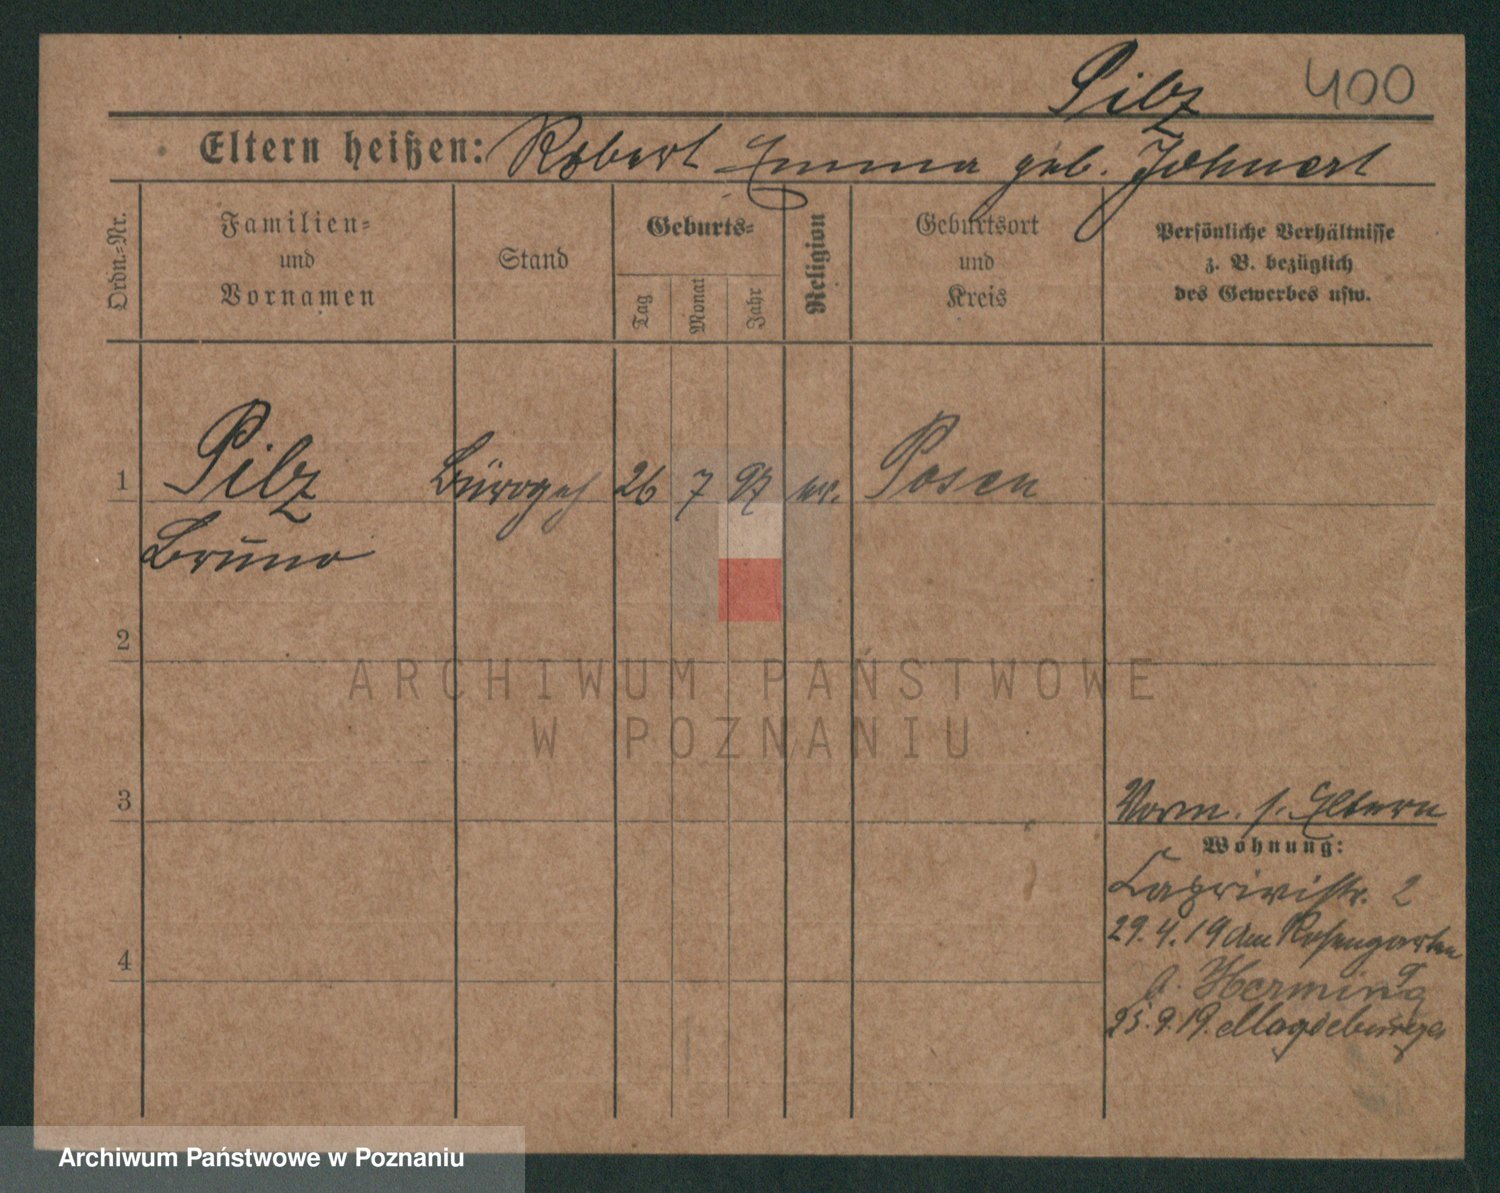 Pilz 400
Eltern heißen: Robert Emma geb. Johnert
Ordn.-Nr.
Familien-
und
Vornamen
Stand
Geburts-
Tag
Monat
Jahr
Religion
Geburtsort
und
Kreis
Persönliche Verhältnisse
z. B. bezüglich
des Gewerbes usw.
1 Pilz Bürogeh 26 7 97 ev. Posen
Bruno
2
ARCHIWUM PAŃSTWOWE
W POZNANIU
3
Vorm. s. Eltern
Wohnung:
Caprivistr. 2
29.4.19 Am Rosengarten
4
b. Herming
25.9.19. Magdeburg
Archiwum Państwowe w Poznaniu